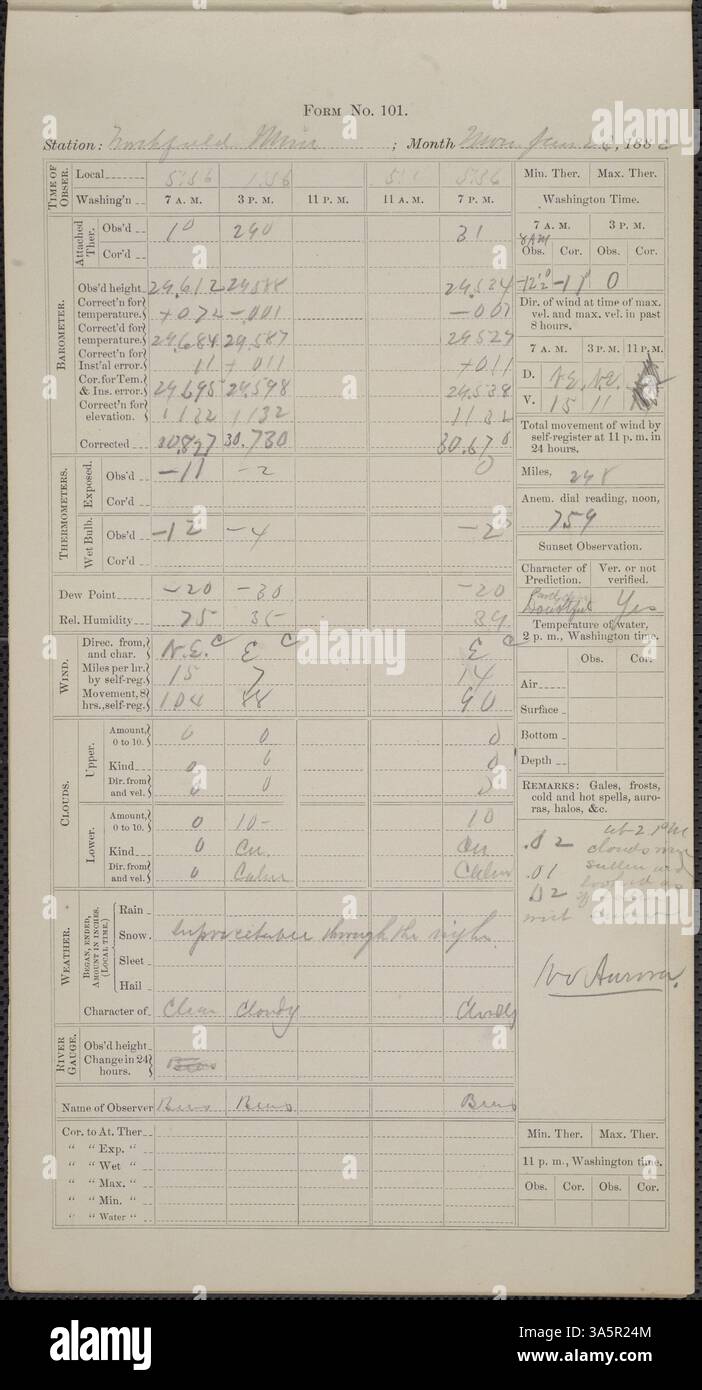 FORM NO. 101.
Station: Northfield Minn ; Month Mon Jan 26, 188
TIME OF OBSER.
Local 5:56 1.56 5:56
Washing'n 7 A. M. 3 P. M. 11 P. M. 11 A. M. 7 P. M.
Attached Ther.
Obs'd 10 290 31
Cor'd
BAROMETER.
Obs'd height 29.612 29.588 29.534
Correct'n for temperature. +072 -.001 -007
Correct'd for temperature. 29.684 29.587 29.527
Correct'n for Inst'al error. 11 + 011 +011
Cor. for Tem. & Ins. error. 29.695 29.598 29.538
Correct'n for elevation. 1132 1132 1132
Corrected 30.827 30.730 30.670
THERMOMETERS.
Exposed.
Obs'd -11 -2 0
Cor'd
Wet Bulb.
Obs'd -12 -4 -2
Cor'd
Dew Point -20 -30 -20
Rel. Humidity 75 35
WIND.
Direc. from, and char. N.E. c E c E c
Miles per hr. by self-reg. 15 7 14
Movement, 8 hrs., self-reg. 104 88 90
CLOUDS.
Upper.
Amount, 0 to 10. 0 0 0
Kind 0 0 0
Dir. from and vel. 0 0 0
Lower.
Amount, 0 to 10. 0 10- 10
Kind 0 Cu. Cu
Dir. from and vel. 0 Calm Calm
WEATHER.
BEGAN, ENDED, AMOUNT IN INCHES. (LOCAL TIME.)
Rain
Snow. through the night.
Sleet
Hail
Character of Clear Cloudy Cloudy
RIVER GAUGE.
Obs'd height
Change in 24 hours.
Name of Observer
Cor. to At. Ther
" " Exp. "
" " Wet "
" " Max. "
" " Min. "
" " Water "
Min. Ther. Max. Ther.
Washington Time.
7 A. M. 3 P. M.
8 AM
Obs. Cor. Obs. Cor.
-12.0 -18 0
Dir. of wind at time of max. vel. and max. vel. in past 8 hours.
7 A. M. 3 P. M. 11 P. M.
D. N.E. N.E.
V. 15 11
Total movement of wind by self-register at 11 p. m. in 24 hours.
Miles, 298
Anem. dial reading, noon,
759
Sunset Observation.
Character of Prediction. Ver. or not verified.
Doubtful Yes
Temperature of water, 2 p. m., Washington time.
Obs. Cor.
Air
Surface
Bottom
Depth
REMARKS: Gales, frosts, cold and hot spells, auroras, halos, &c.
at 2 PM
.02 clouds were
.01 sullen and
02 looked as
No Aurora.
Min. Ther. Max. Ther.
11 p. m., Washington time.
Obs. Cor. Obs. Cor.
alamy
Image ID: 3A5R24M
www.alamy.com